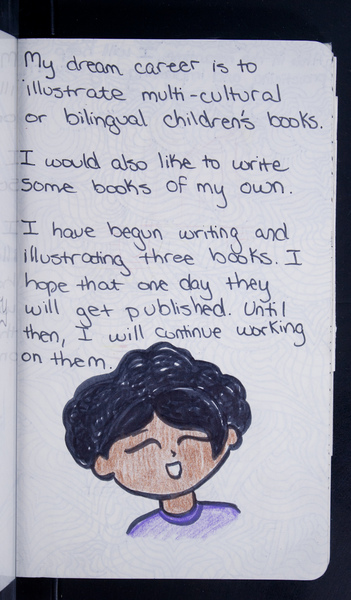 My dream career is to
illustrate multi-cultural
or bilingual children's books.
I would also like to write
some books of my own.
I have begun writing and
illustrating three books. I
hope that one day they
will get published. Until
then, I will continue working
on them.